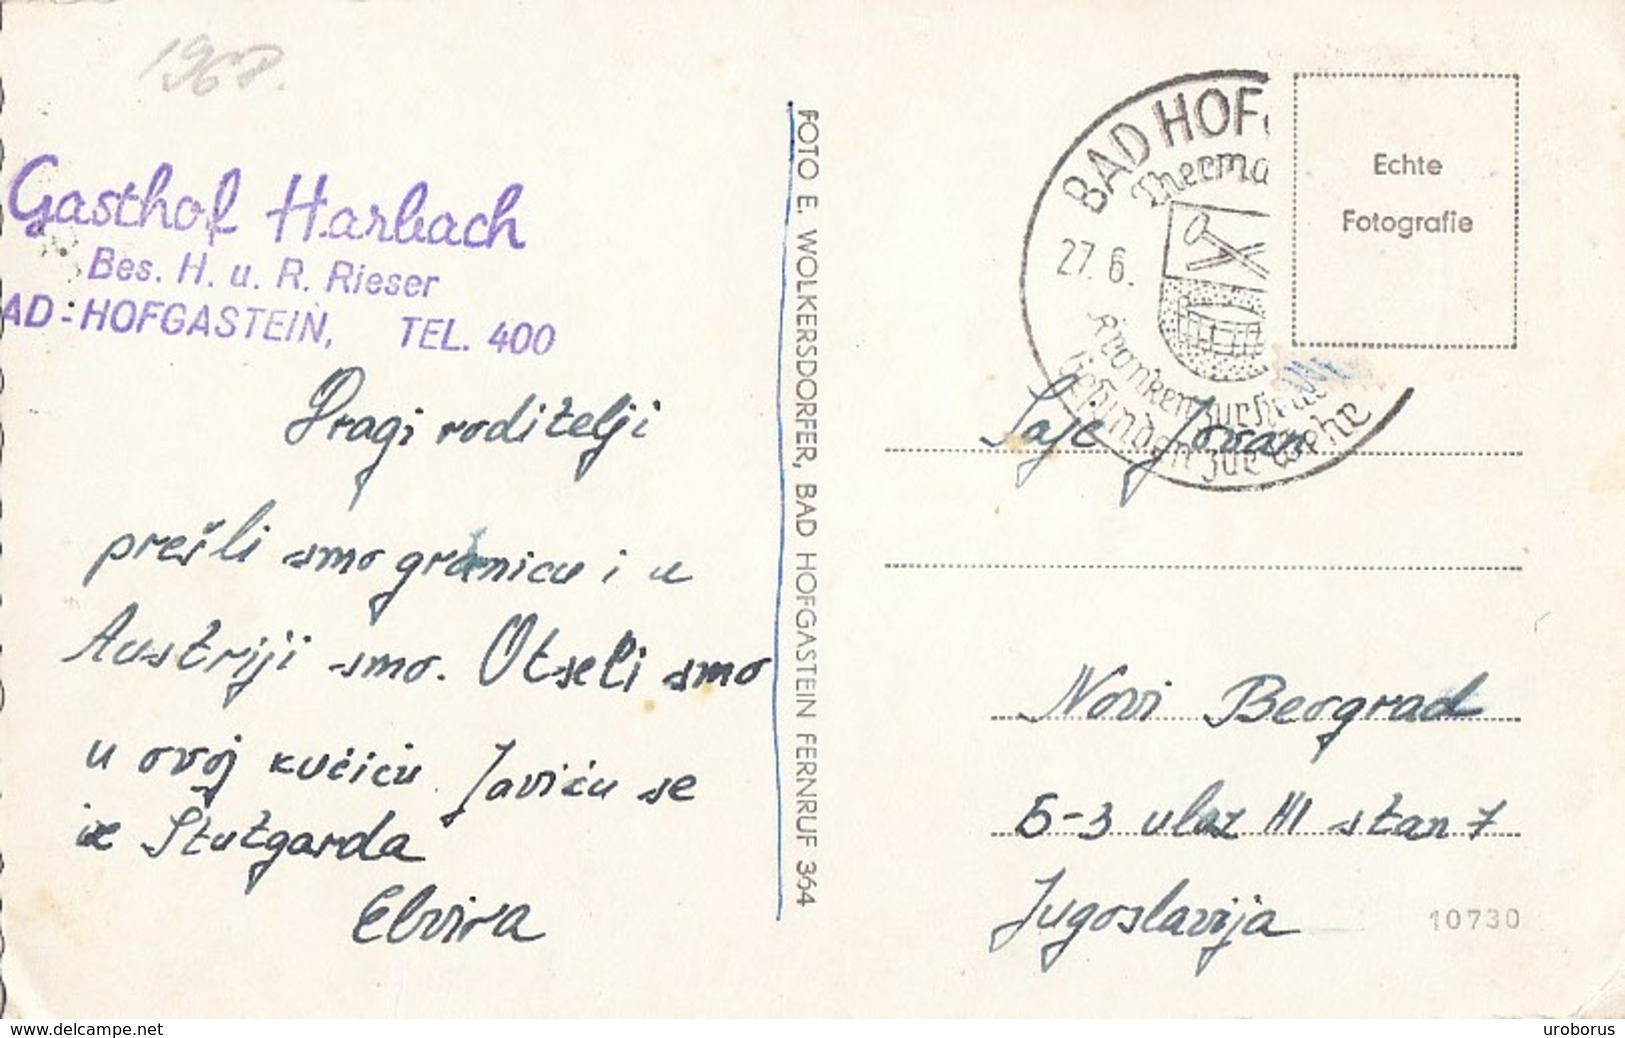 1968.
Gasthof Harbach
Bes. H. u. R. Rieser
AD-HOFGASTEIN, TEL. 400
Dragi roditelji
prešli smo granicu i u
Austriji smo. Otseli smo
u ovoj kućicu Javiću se
iz Štutgarda
Elvira
FOTO E. WOLKERSDORFER, BAD HOFGASTEIN FERNRUF 364
BAD HOFG
Therma
27. 6.
Kranken zur
Gesunden zur Wehr
Echte
Fotografie
Jovan
Novi Beograd
5-3 ulaz III stan 7
Jugoslavija
10730
www.delcampe.net
uroborus